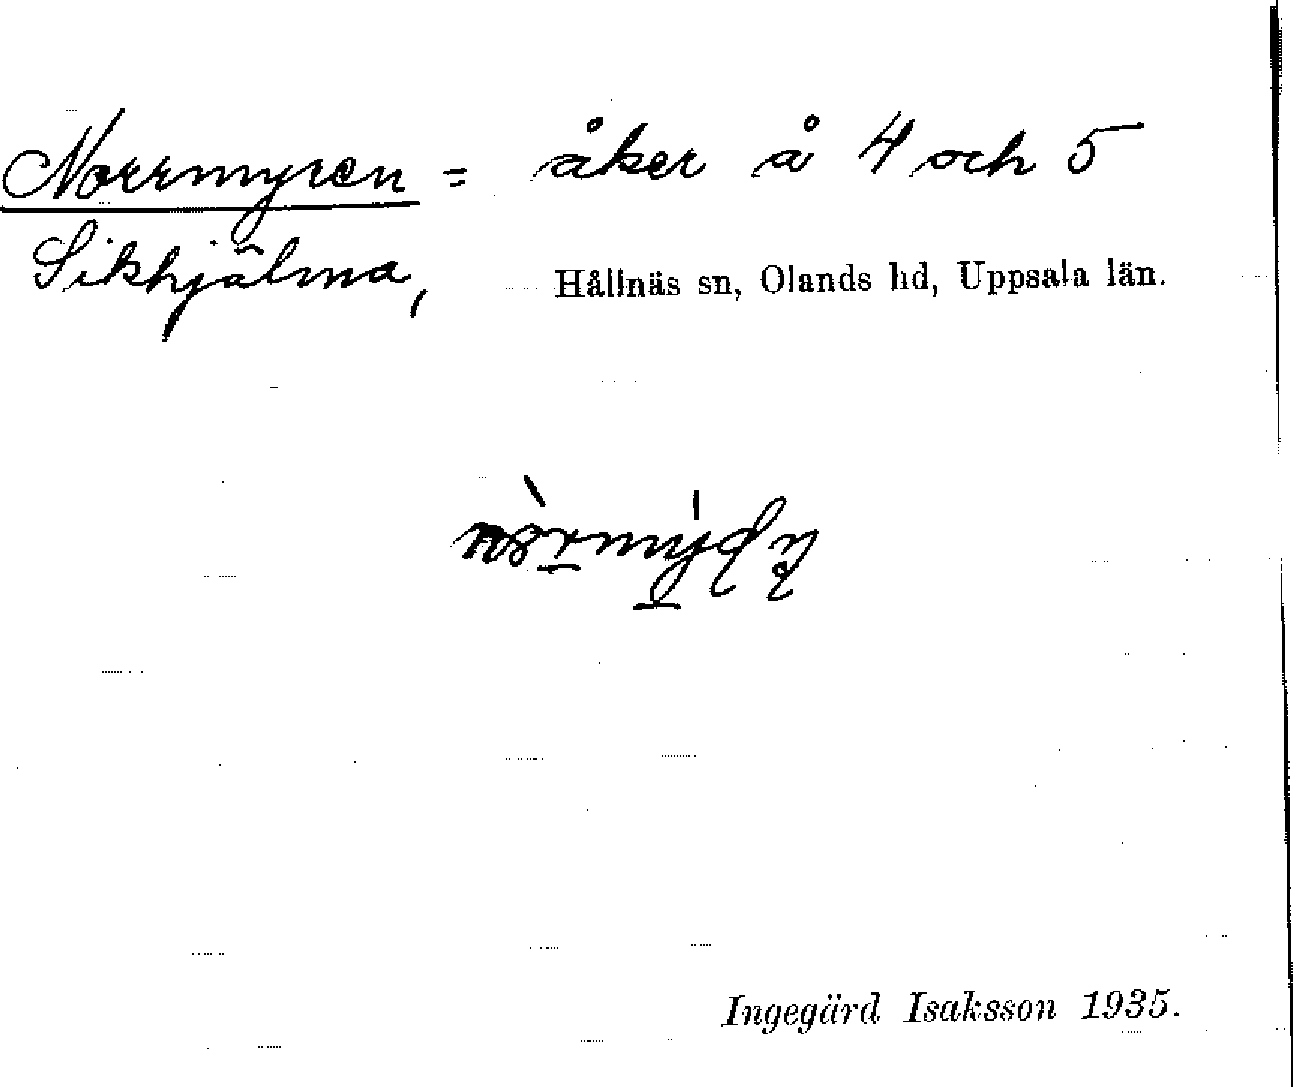 Norrmyren = åker å 4 och 5
Sikhjälma, Hållnäs sn, Olands hd, Uppsala län.
Ingegärd Isaksson 1935.